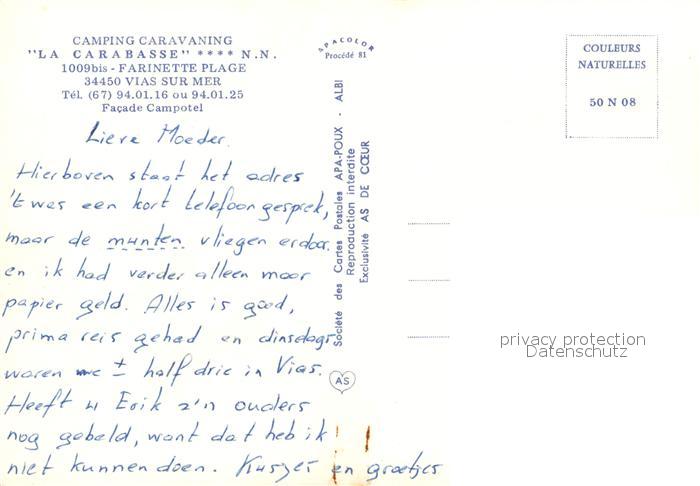 CAMPING CARAVANING
"LA CARABASSE" **** N.N.
1009bis - FARINETTE PLAGE
34450 VIAS SUR MER
Tél. (67) 94.01.16 ou 94.01.25
Façade Campotel
Lieve Moeder.
Hierboven staat het adres
't was een kort telefoongesprek,
maar de munten vliegen erdoor.
en ik had verder alleen maar
papier geld. Alles is goed,
prima reis gehad en dinsdags
waren we ± half drie in Vias.
Heeft u Erik z'n ouders
nog gebeld, want dat heb ik
niet kunnen doen. Kusjes en groetjes
APACOLOR
Procédé 81
Société des Cartes Postales APA-POUX - ALBI
Reproduction interdite
Exclusivité AS DE CŒUR
AS
COULEURS
NATURELLES
50 N 08
privacy protection
Datenschutz